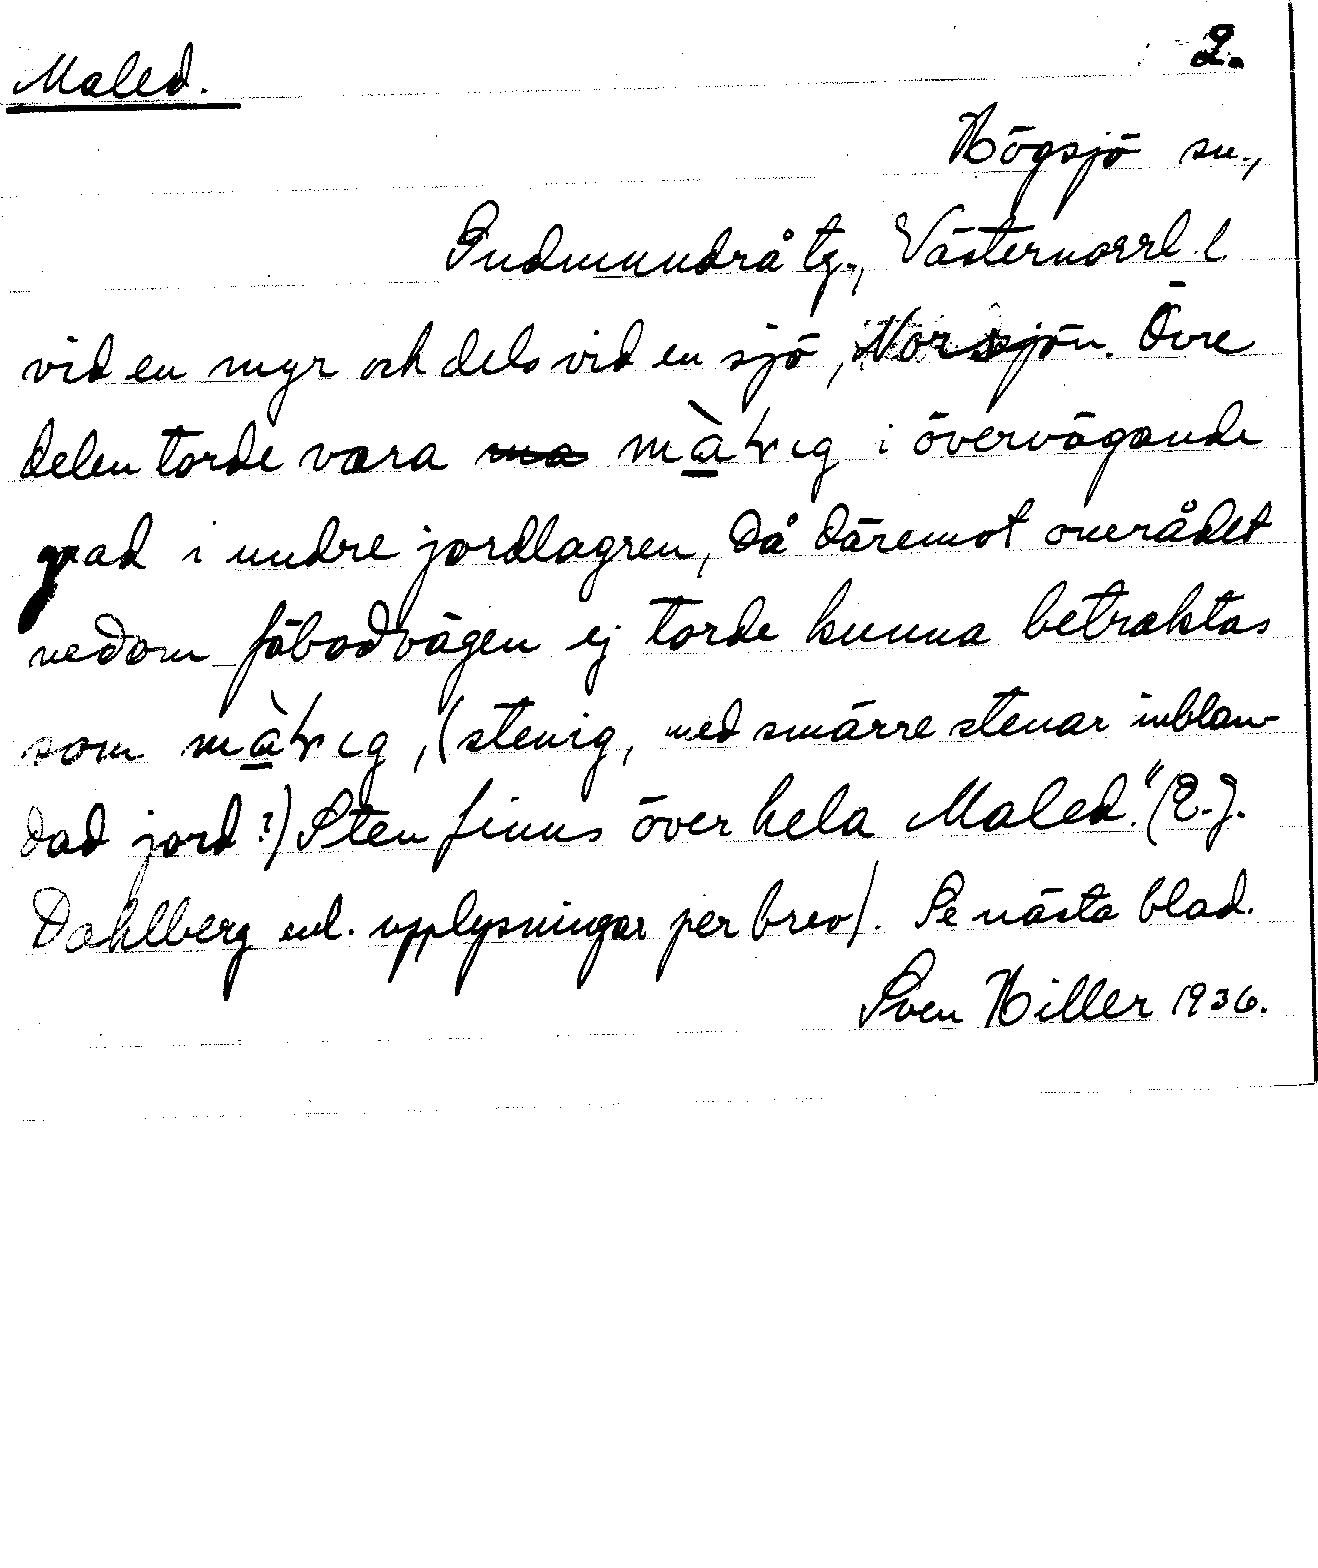 Maled. 2.
Högsjö sn.,
Gudmundrå tg., Västernorrl. l
vid en myr och dels vid en sjö, Norsjön. Övre
delen torde vara ma i övervägande
grad i undre jordlagren, då däremot området
nedom fäbodvägen ej torde kunna betraktas
som , (stenig, med smärre stenar inblan-
dad jord?) Sten finns över hela Maled." (E. J.
Dahlberg enl. upplysningar per brev). Se nästa blad.
Sven Hiller 1936.